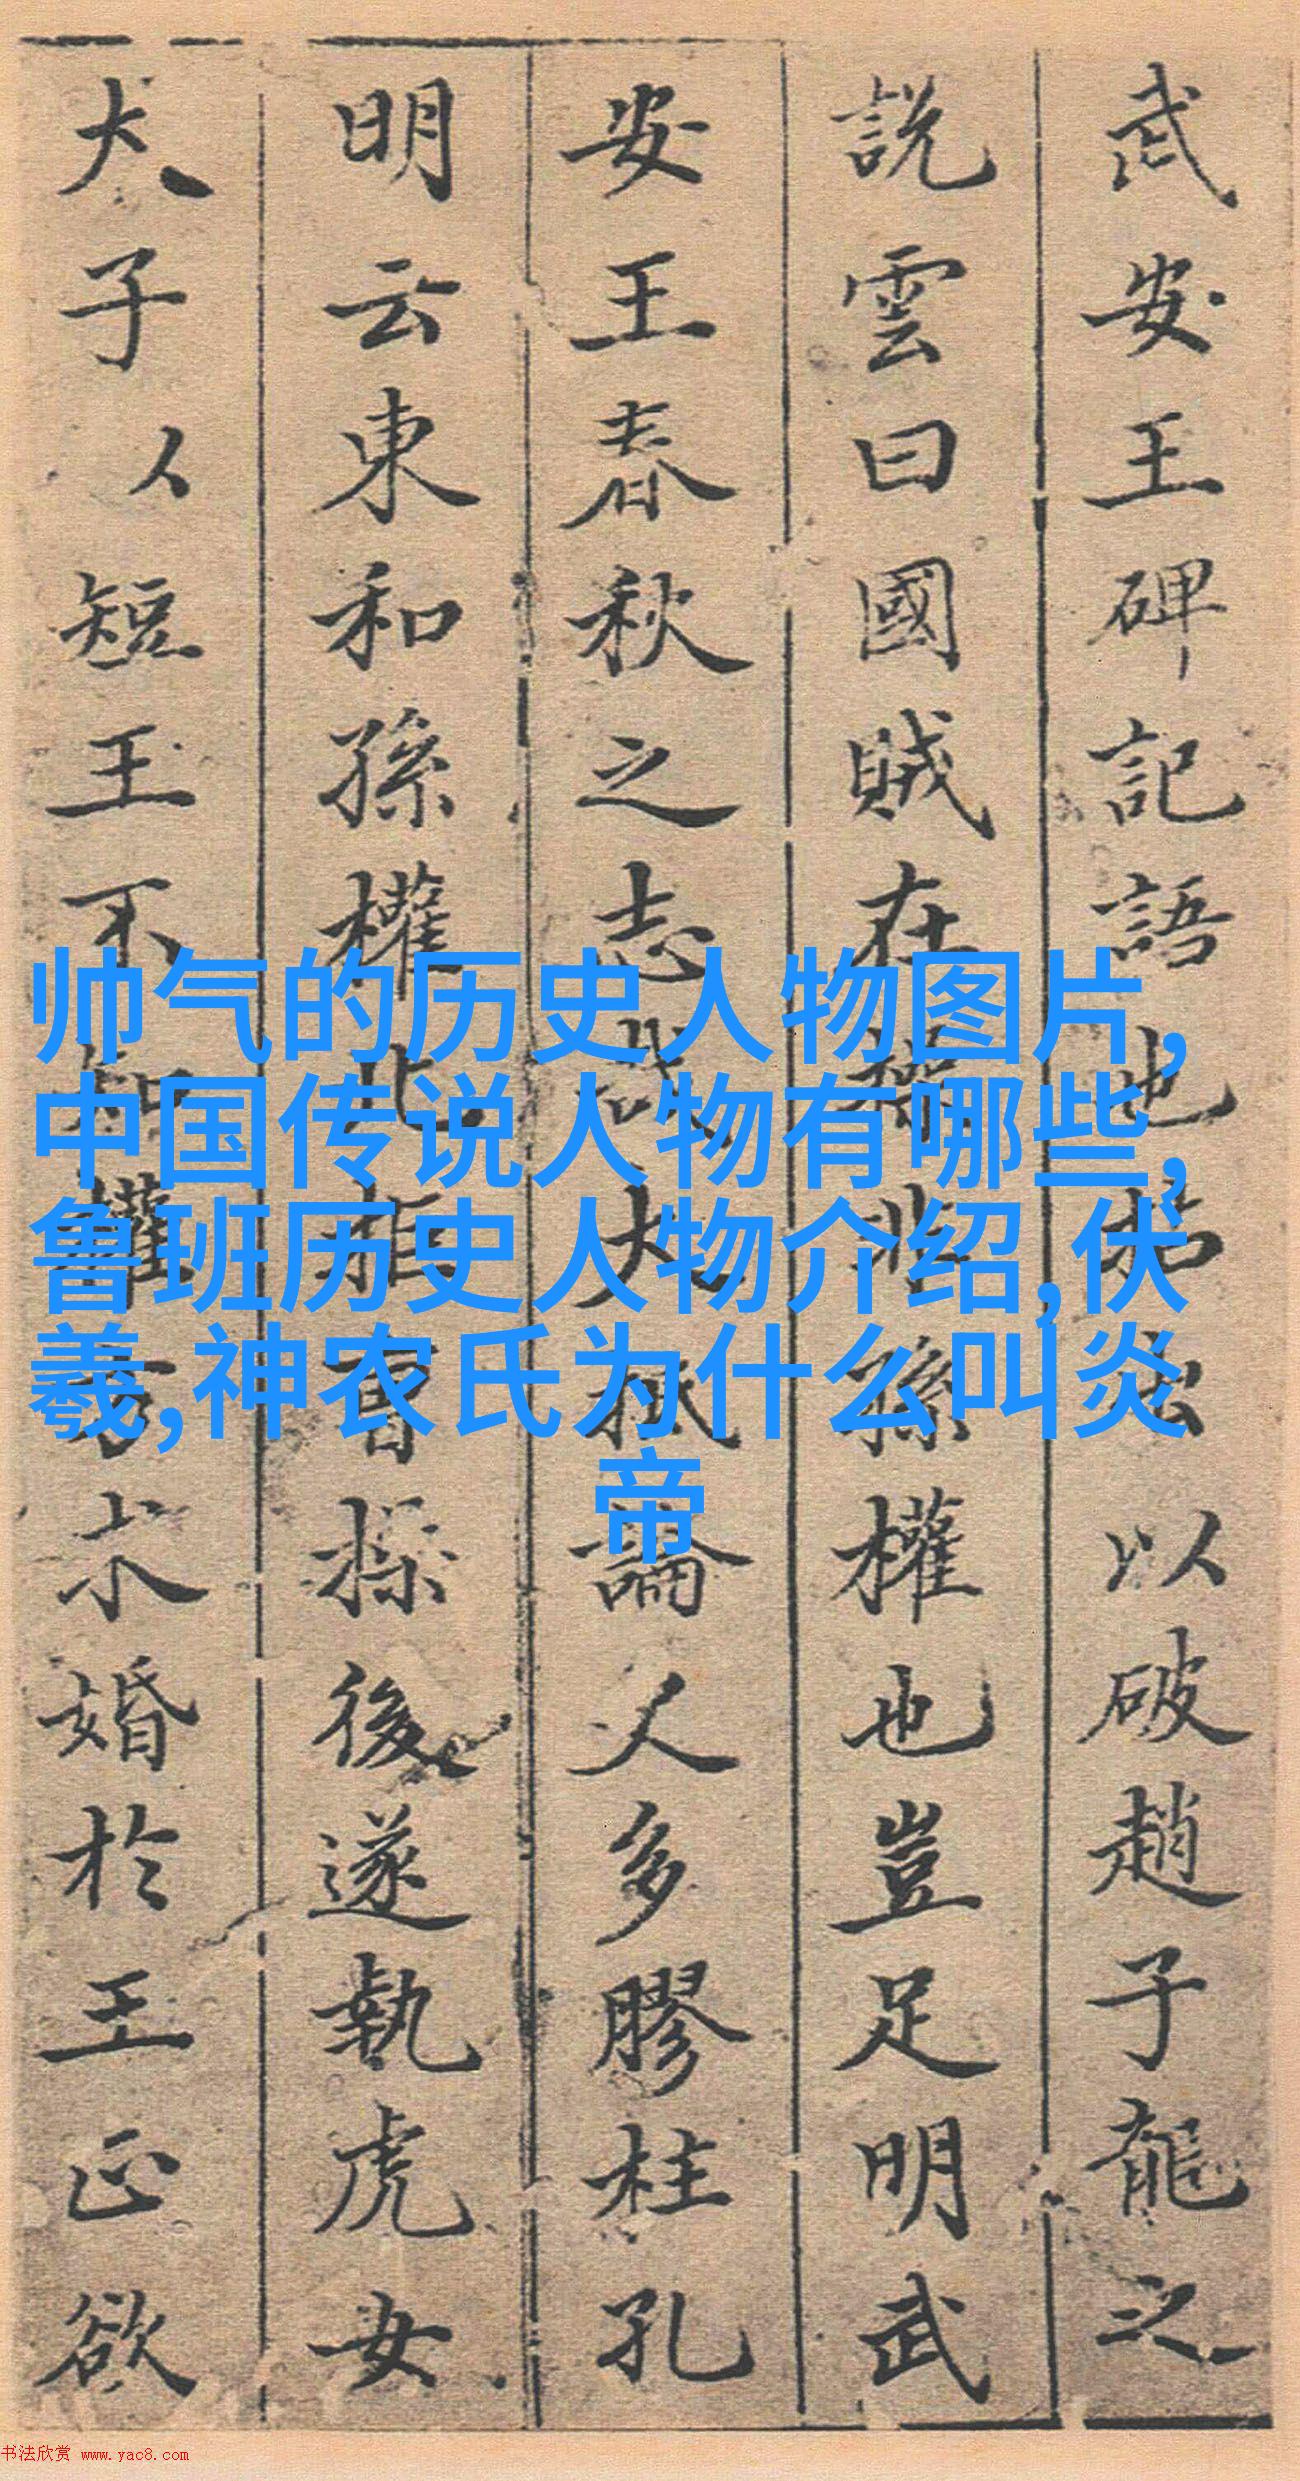 武安王碑記語也若以破趙子龍之
說雲曰國賊在操非孫權也豈足明武
安王春秋之志哉大抵論人多膠柱孔
明云東和孫權北拒曹操後遂執虎女
犬子以短王不知權方求婚於王正欲
帅气的历史人物图片,
中国传说人物有哪些,
鲁班历史人物介绍,伏
羲,神农氏为什么叫炎
帝
书法欣赏 www.yac8.com